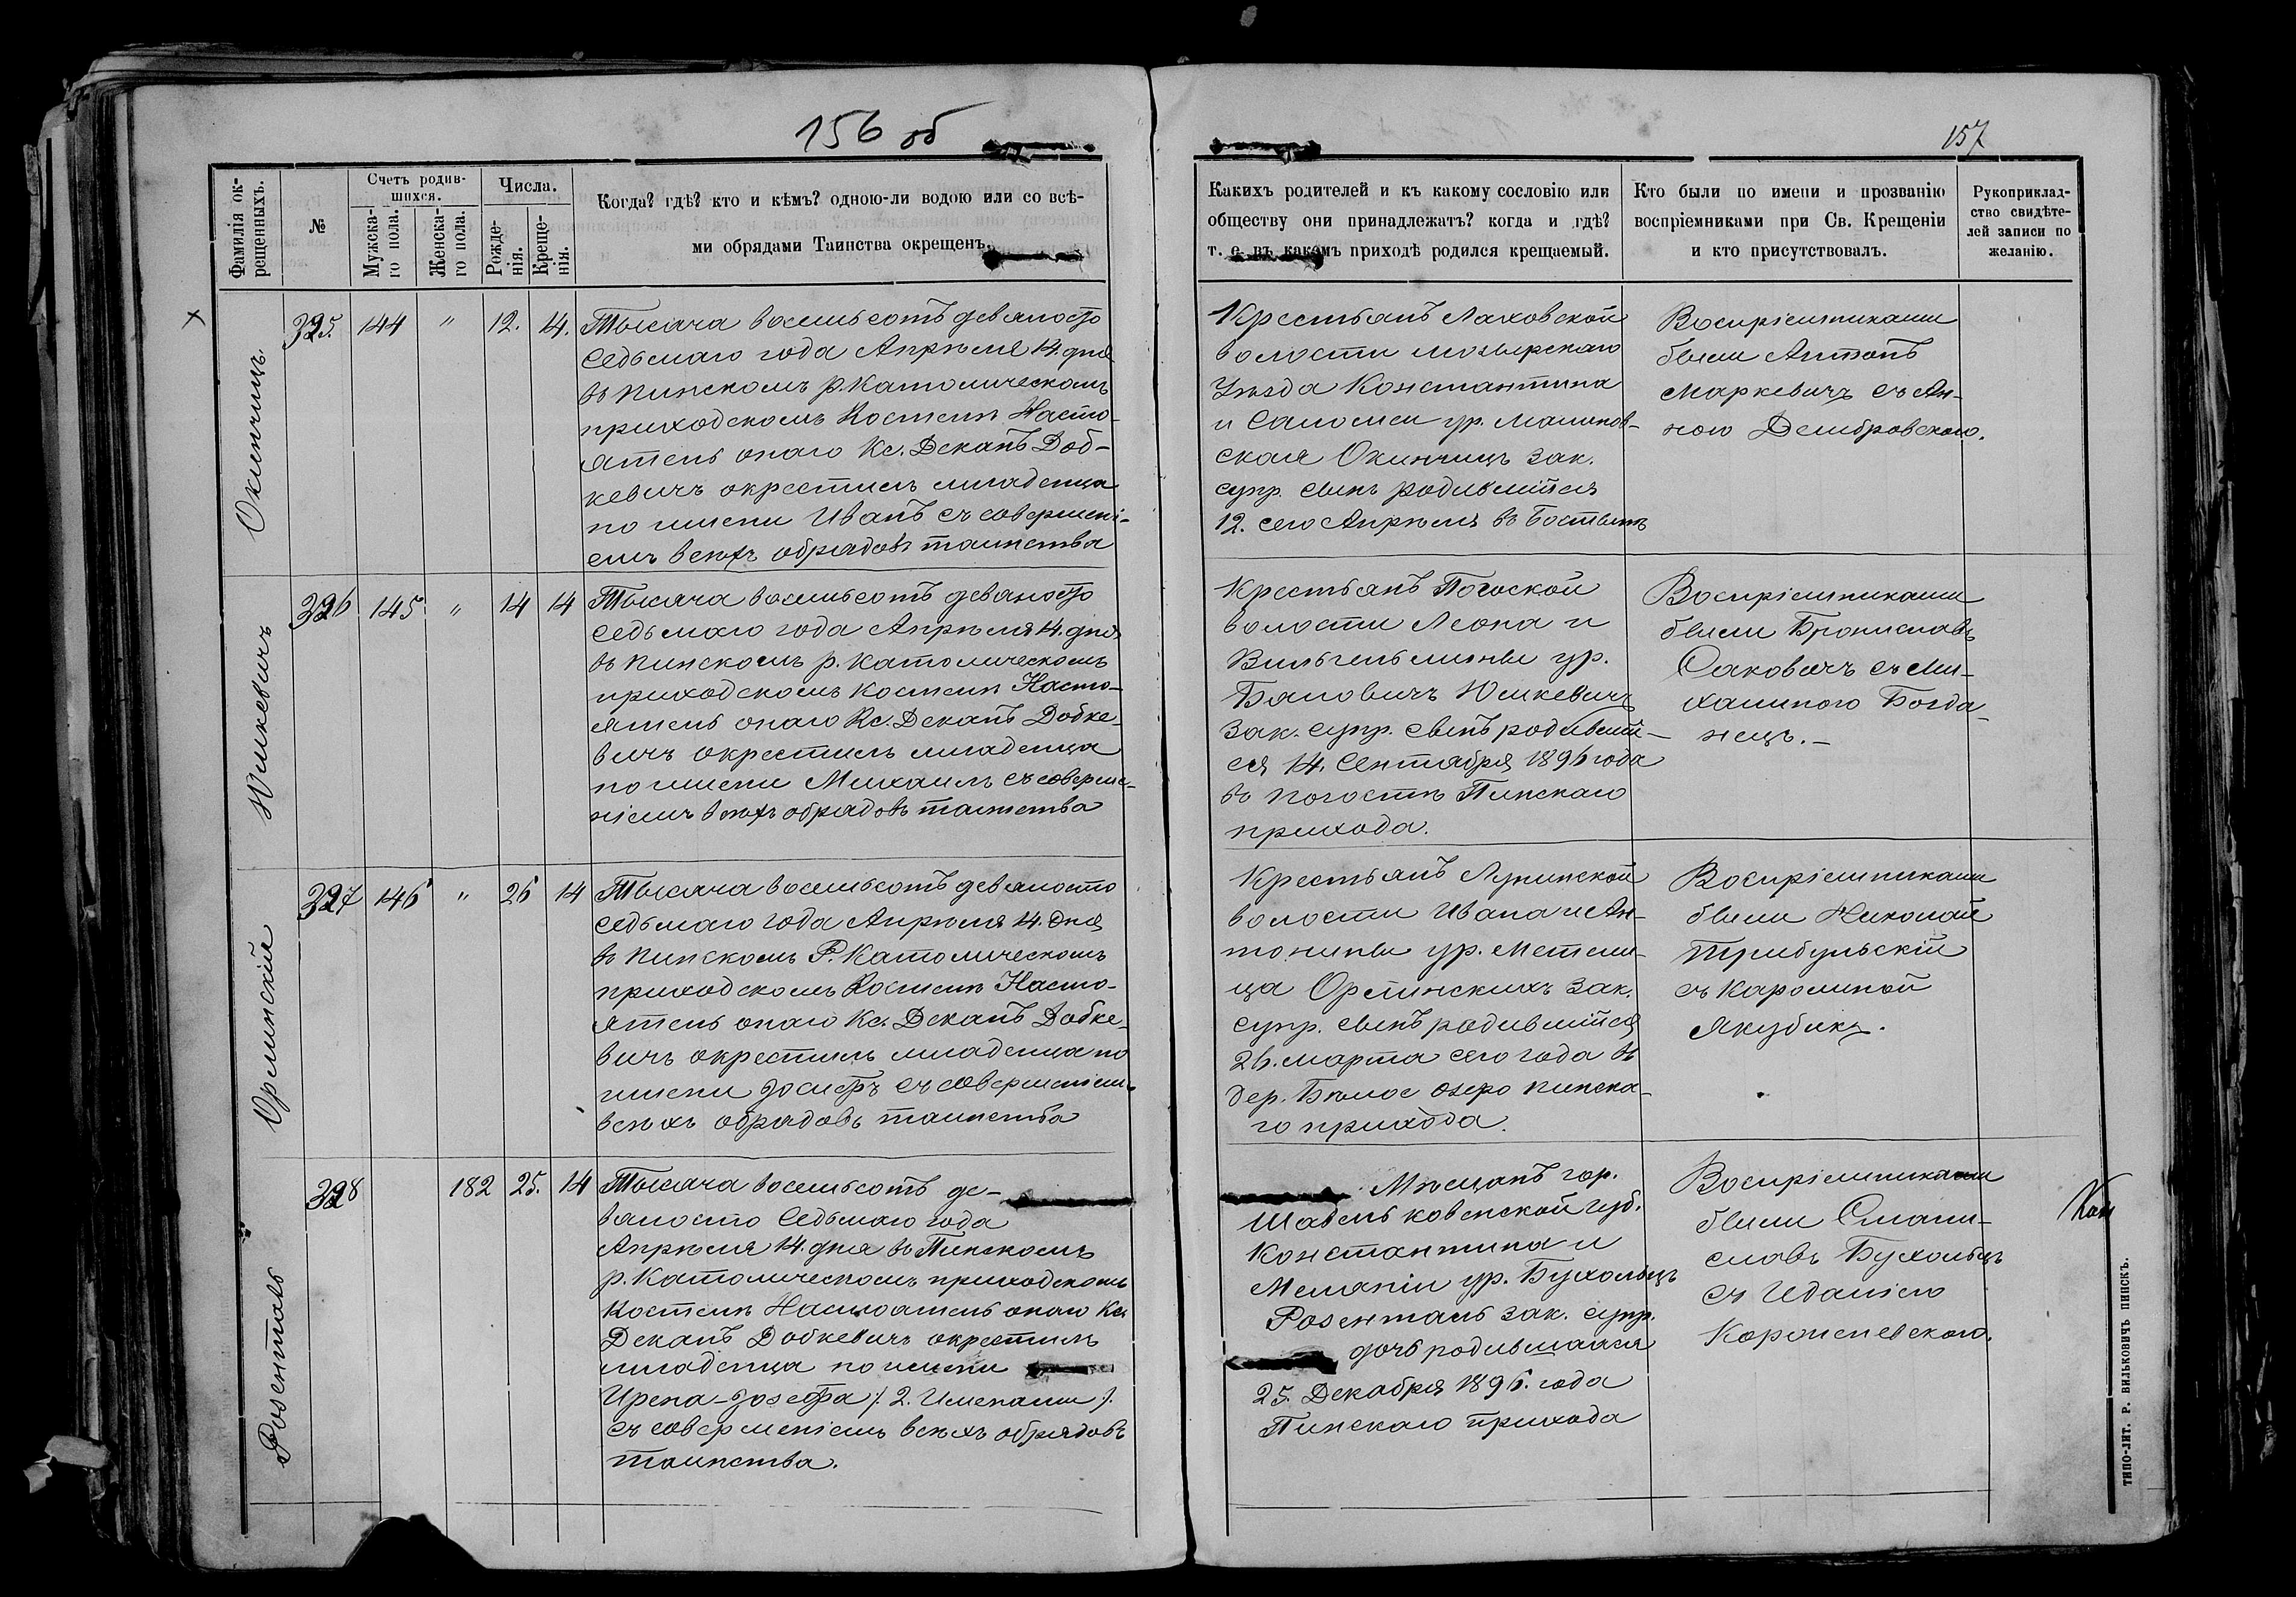 156 об
157
Фамилія ок-
рещенныхъ.
№
Счетъ родив-
шихся.
Мужска-
го пола.
Женска-
го пола.
Числа.
Рожде-
нія.
Креще-
нія.
Когда? гдѣ? кто и кѣмъ? одною-ли водою или со всѣ-
ми обрядами Таинства окрещенъ.
Какихъ родителей и къ какому сословію или
обществу они принадлежатъ? когда и гдѣ?
т. е. въ какомъ приходѣ родился крещаемый.
Кто были по имени и прозванію
воспріемниками при Св. Крещеніи
и кто присутствовалъ.
Рукоприклад-
ство свидѣте-
лей записи по
желанію.
Окинчицъ.
325. 144 " 12. 14.
Тысяча восемьсотъ девяносто
седьмаго года Апрѣля 14. дня
въ Пинскомъ р. Католическомъ
приходскомъ Костелѣ Насто-
ятель онаго Кс. Деканъ Доб-
кевичъ окрестилъ младенца
по имени Иванъ съ совершені-
емъ всѣхъ обрядовъ таинства
Крестьянъ Лаховской
волости мозырскаго
Уѣзда Константина
и Саломеи ур. Малинов-
ская Окинчицъ зак.
супр. сынъ родившійся
12. сего Апрѣля въ Бостынѣ
Воспріемниками
были Антонъ
Маркевичъ съ Ан-
ною Дембровскою.
Юшкевичъ
326 145 " 14 14
Тысяча восемьсотъ девяносто
седьмаго года Апрѣля 14. дня
въ Пинскомъ р. Католическомъ
приходскомъ костелѣ Насто-
ятель онаго Кс. Деканъ Добке-
вичъ окрестилъ младенца
по имени Михаилъ съ соверше-
ніемъ всѣхъ обрядовъ таинства
Крестьянъ Погоской
волости Леона и
Вильгельмины ур.
Юшкевичъ
зак. супр. сынъ родивший-
ся 14. Сентября 1896 года
въ Погостѣ Пинскаго
прихода.
Воспріемниками
были Брониславъ
Саковичъ съ Ми-
халиною Богда-
нецъ. –
Орлинскій
327 146 " 26 14
Тысяча восемьсотъ девяносто
седьмаго года Апрѣля 14. дня
въ Пинскомъ Р. Католическомъ
приходскомъ Костелѣ Насто-
ятель онаго Кс. Деканъ Добке-
вичъ окрестилъ младенца по
имени Іосифъ съ совершеніемъ
всѣхъ обрядовъ таинства
Крестьянъ Лунинской
волости Ивана и Ан-
тонины ур. Метели-
ца Орлинскихъ зак.
супр. сынъ родившійся
26. марта сего года въ
дер. Бѣлое озеро Пинска-
го прихода.
Воспріемниками
были Николай
Трибульскій
съ Каролиной
Якубикъ.
Розенталь
328 182 25. 14
Тысяча восемьсотъ де-
вяносто Седьмаго года
Апрѣля 14. дня въ Пинскомъ
р. Католическомъ приходскомъ
Костелѣ Настоятель онаго Кс.
Деканъ Добкевичъ окрестилъ
младенца по имени
Ирена-Іозефа /: 2. Именами :/
съ совершеніемъ всѣхъ обрядовъ
таинства.
Мѣщанъ гор.
Шавель ковенской губ.
Константина и
Меланіи ур. Бухольцъ
Розенталь зак. супр.
дочь родившаяся
25. Декабря 1896. года
Пинскаго прихода
Воспріемниками
были Стани-
славъ Бухольцъ
съ Иданіею
Королевскою.
ТИПО-ЛИТ. Р. ВИЛЬКОВИЧЪ ПИНСКЪ.